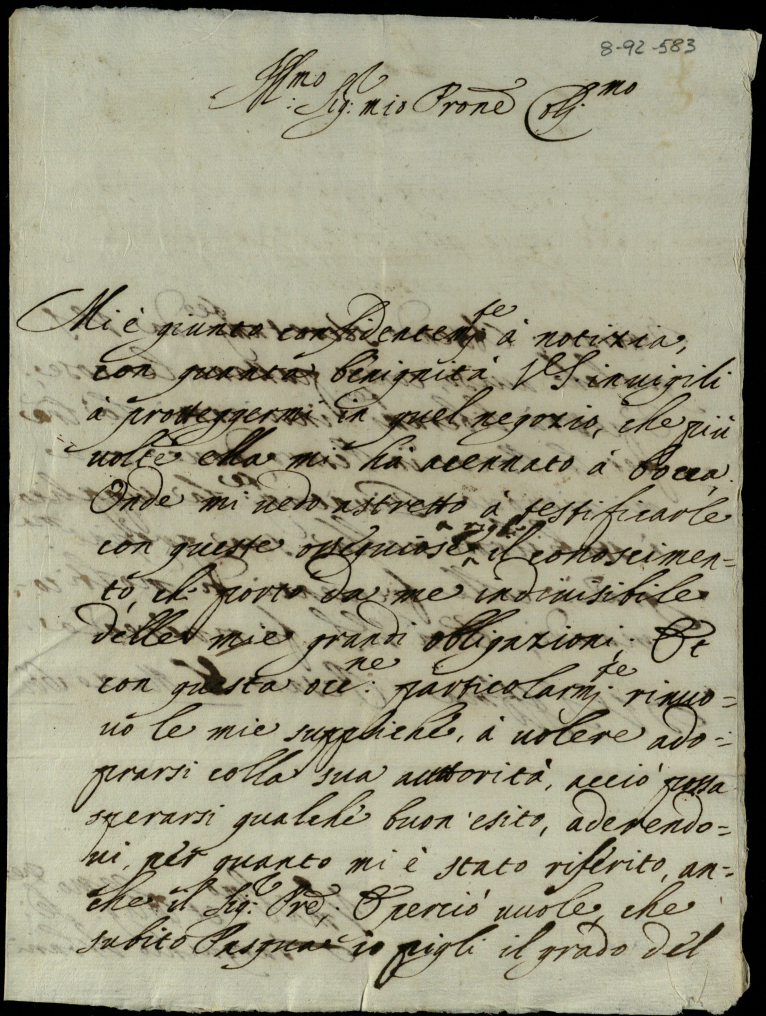 8-92-583
Ill:mo Sig:r mio Prone Coll:mo
Mi è giunta confidentem:te à notizia,
con quanta benignità V.S. inuigili
à proteggermi in quel negozio, che più
uolte ella mi hà acennato à bocca.
Onde mi uedo astretto à testificarle
con queste ossequiose righe il conoscimen=
to, ch: porto da me indiuisibile
delle mie grandi obbligazioni. Et
con questa occ:ne particolarm:te rinuo=
uo le mie suppliche, à uolere ado=
prarsi colla sua auttorità, acciò possa
sperarsi qualche buon'esito, aderendo=
ui, per quanto mi è stato riferito, an=
che il Sig:r Pre; & perciò uuole, che
subito Pasqua io pigli il grado del